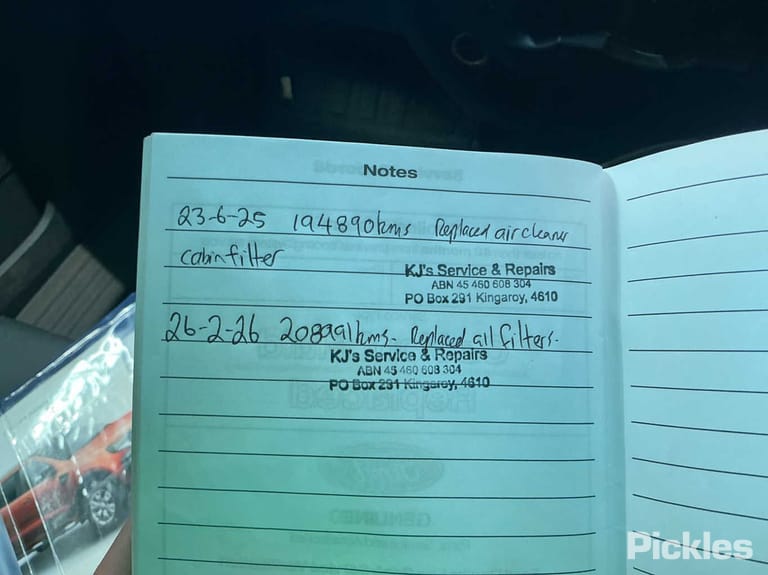 Notes
23-6-25 194890kms Replaced air cleaner
cabin filter
KJ's Service & Repairs
ABN 45 460 608 304
PO Box 291 Kingaroy, 4610
26-2-26 208991kms. Replaced all filters.
KJ's Service & Repairs
ABN 45 460 608 304
PO Box 291 Kingaroy, 4610
Pickles